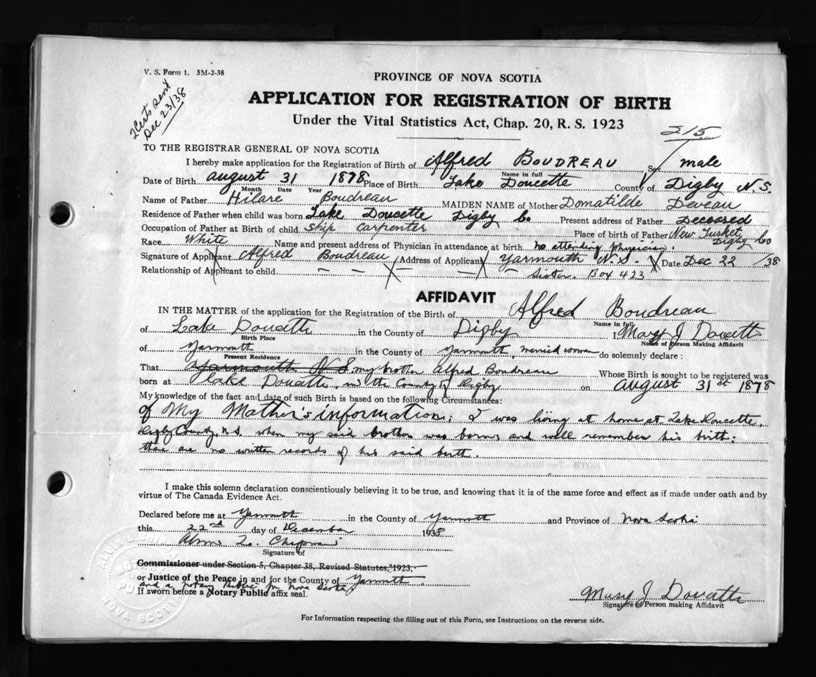 V. S. Form 1. 5M-2-38
PROVINCE OF NOVA SCOTIA
2 Certs sent
Dec 23/38
APPLICATION FOR REGISTRATION OF BIRTH
Under the Vital Statistics Act, Chap. 20, R. S. 1923
215
TO THE REGISTRAR GENERAL OF NOVA SCOTIA
I hereby make application for the Registration of Birth of Alfred BOUDREAU Sex male
Name in full
Date of Birth august 31 1878 Place of Birth Lake Doucette County of Digby N S.
Month Date Year
Name of Father Hilare Boudreau MAIDEN NAME of Mother Donatilde Deveau
Residence of Father when child was born Lake Doucette Digby Co Present address of Father Deceased
Occupation of Father at Birth of child Ship carpenter Place of birth of Father New Tusket Digby Co
Race White Name and present address of Physician in attendance at birth no attending physician.
Signature of Applicant Alfred Boudreau Address of Applicant Yarmouth N.S. Date Dec 22 /38
Relationship of Applicant to child — — — — Sister. Box 423
AFFIDAVIT
IN THE MATTER of the application for the Registration of the Birth of Alfred Boudreau
Name in full
of Lake Doucette in the County of Digby I Mary J Doucette
Birth Place Name of Person Making Affidavit
of Yarmouth in the County of Yarmouth, married woman do solemnly declare :
Present Residence
That Yarmouth N S my brother Alfred Boudreau Whose Birth is sought to be registered was
born at Lake Doucette, in the County of Digby on august 31st 1878
My knowledge of the fact and date of such Birth is based on the following Circumstances:
of My Mother's information; I was living at home at Lake Doucette,
Digby County, N.S. when my said brother was born, and well remember his birth;
there are no written records of his said birth.
I make this solemn declaration conscientiously believing it to be true, and knowing that it is of the same force and effect as if made under oath and by
virtue of The Canada Evidence Act.
Declared before me at Yarmouth in the County of Yarmouth and Province of Nova Scotia
this 22nd day of December 1938
Chipman
Signature of
Commissioner under Section 5, Chapter 38, Revised Statutes, 1923,
or Justice of the Peace in and for the County of Yarmouth
and a Notary Public for Nova Scotia
If sworn before a Notary Public affix seal.
Mary J Doucette
Signature of Person making Affidavit
For Information respecting the filling out of this Form, see Instructions on the reverse side.